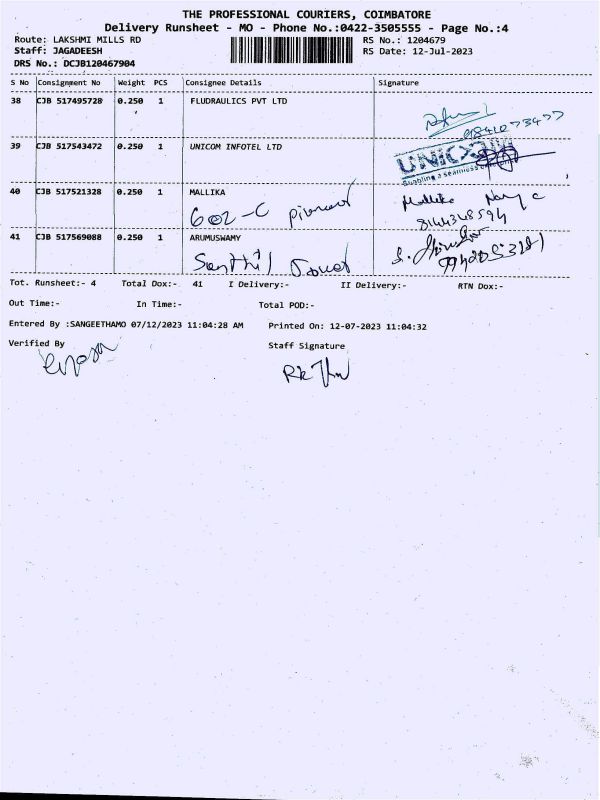 THE PROFESSIONAL COURIERS, COIMBATORE
Delivery Runsheet - MO - Phone No.:0422-3505555 - Page No.:4
Route: LAKSHMI MILLS RD RS No.: 1204679
Staff: JAGADEESH RS Date: 12-Jul-2023
DRS No.: DCJB120467904
S No Consignment No Weight PCS Consignee Details Signature
38 CJB 517495728 0.250 1 FLUDRAULICS PVT LTD
39 CJB 517543472 0.250 1 UNICOM INFOTEL LTD
UNICOM
40 CJB 517521328 0.250 1 MALLIKA
Mallika
602-C
8144348594
41 CJB 517569088 0.250 1 ARUMUSWAMY
Senthil
Tot. Runsheet:- 4 Total Dox:- 41 I Delivery:- II Delivery:- RTN Dox:-
Out Time:- In Time:- Total POD:-
Entered By :SANGEETHAMO 07/12/2023 11:04:28 AM Printed On: 12-07-2023 11:04:32
Verified By Staff Signature